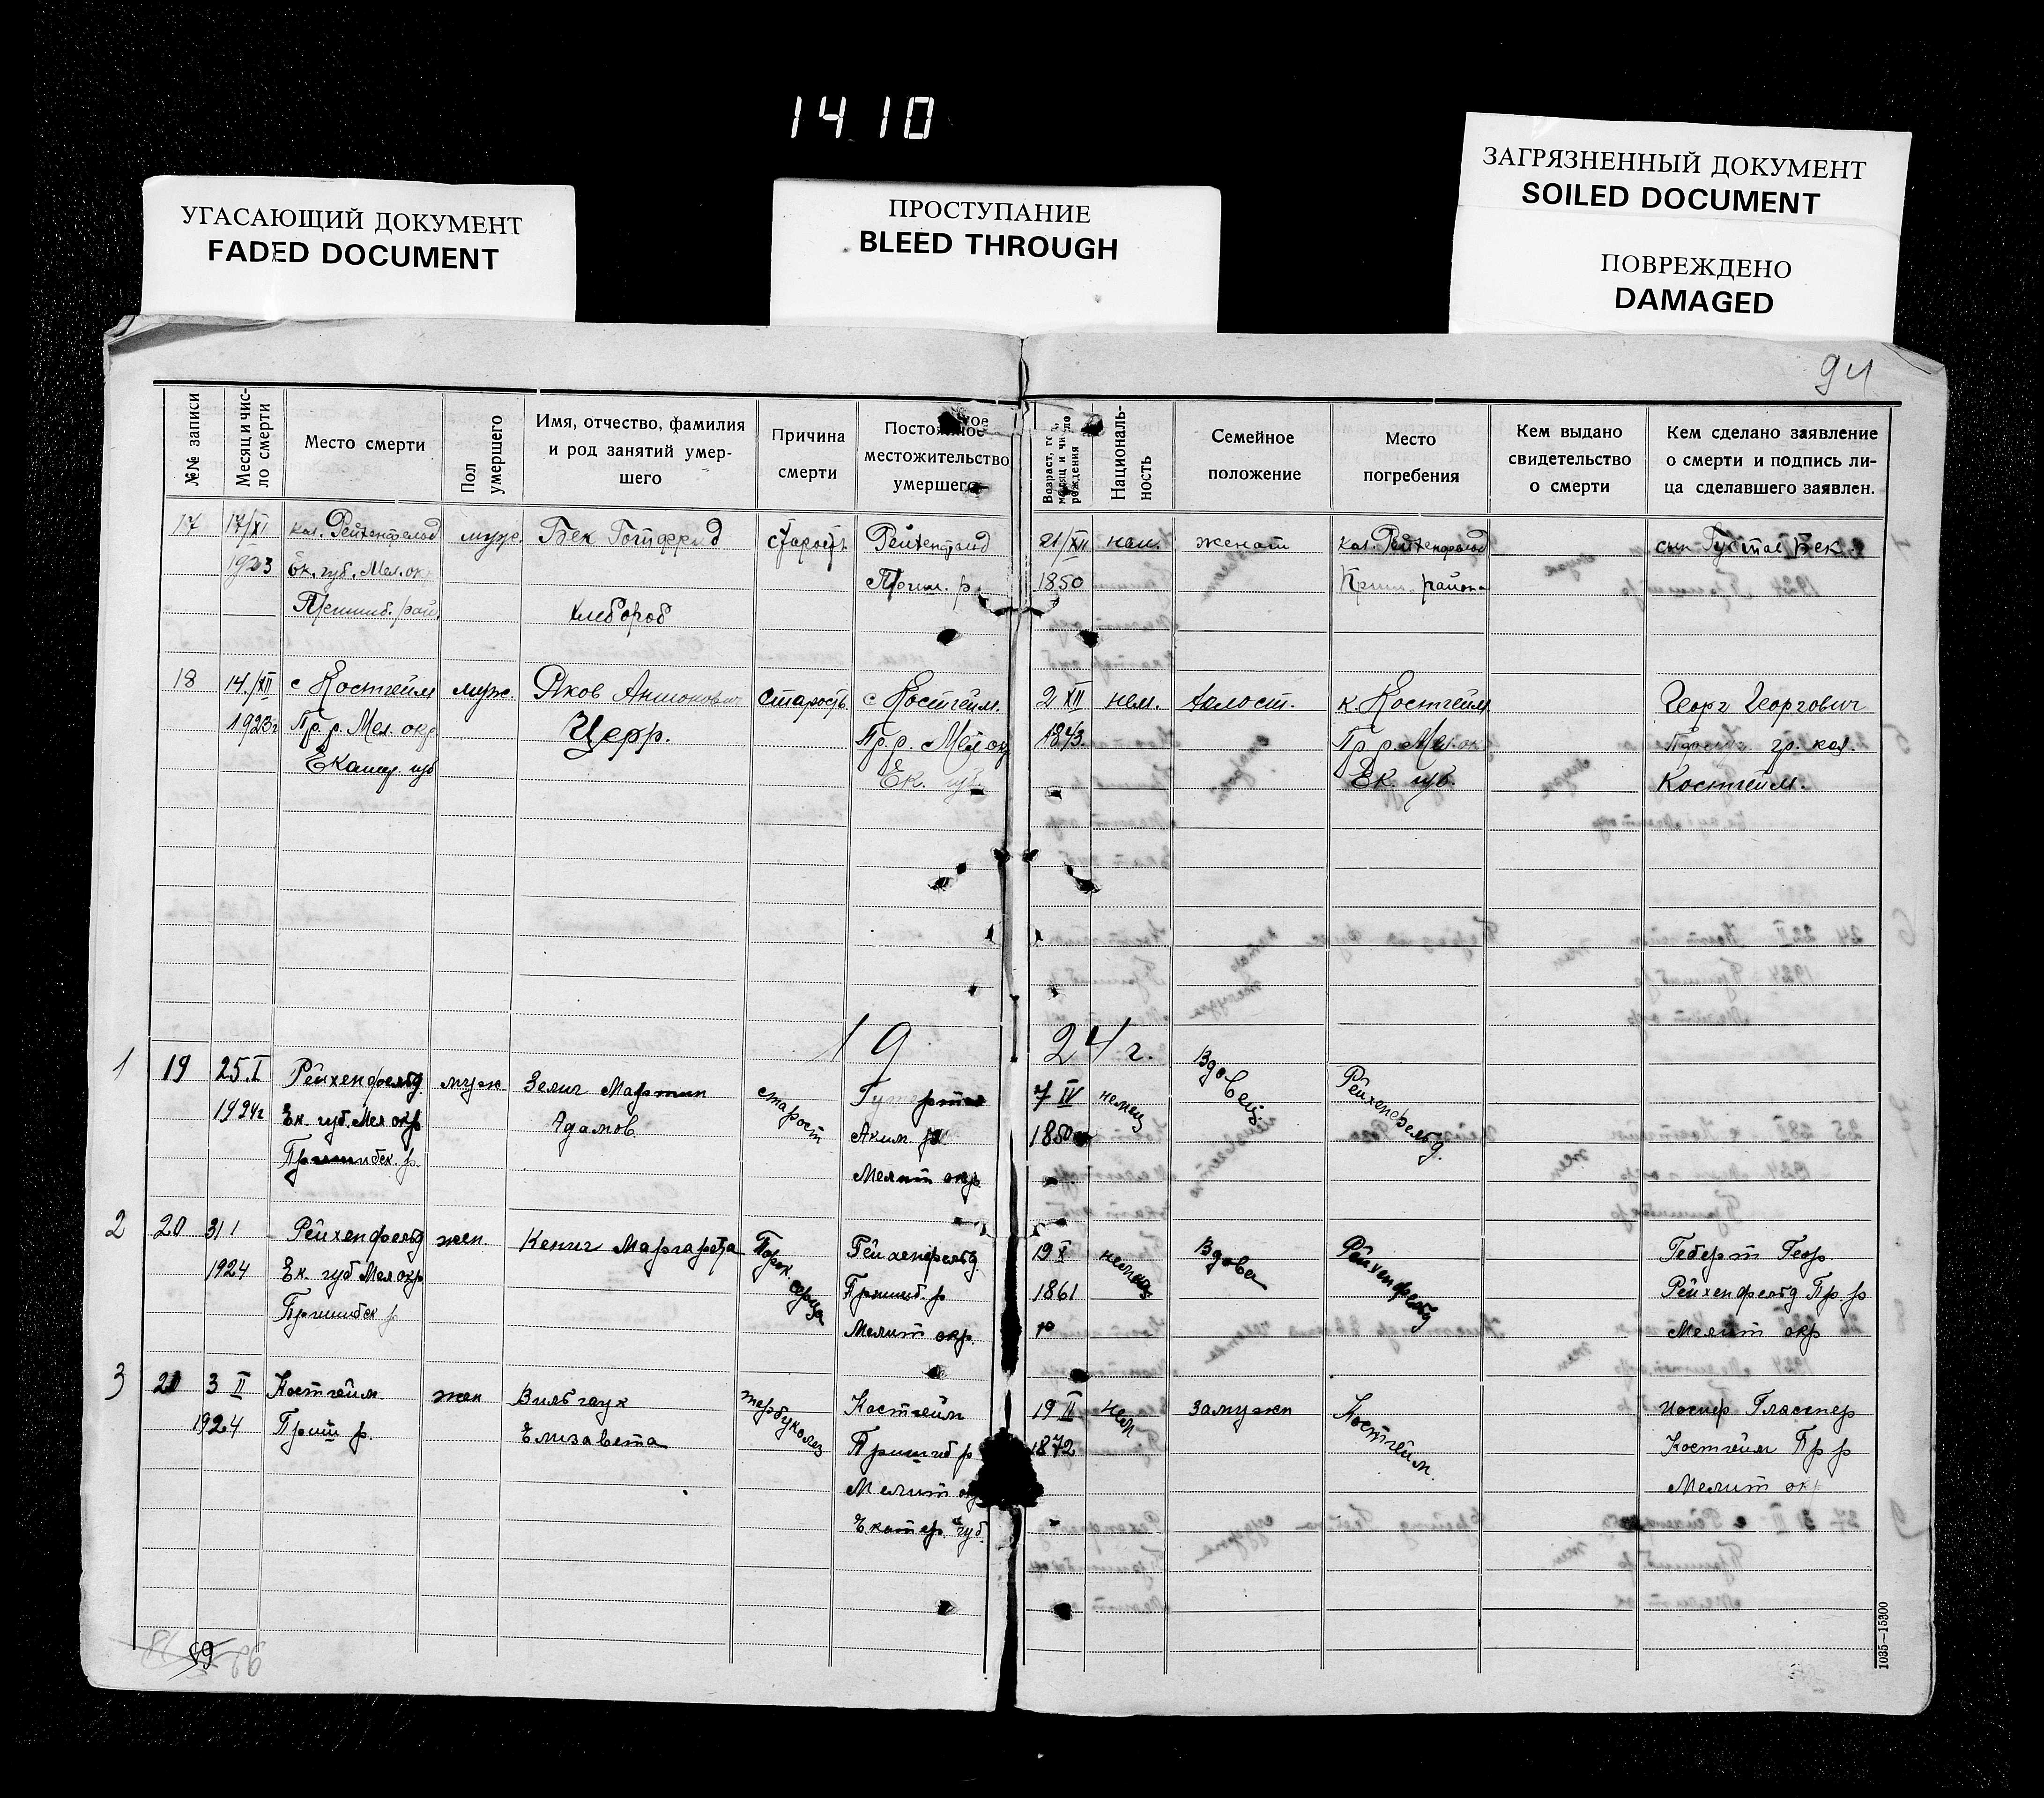 1410
УГАСАЮЩИЙ ДОКУМЕНТ
FADED DOCUMENT
ПРОСТУПАНИЕ
BLEED THROUGH
ЗАГРЯЗНЕННЫЙ ДОКУМЕНТ
SOILED DOCUMENT
ПОВРЕЖДЕНО
DAMAGED
94
№№ записи
Месяц и чис-
ло смерти
Место смерти
Пол
умершего
Имя, отчество, фамилия
и род занятий умер-
шего
Причина
смерти
Постоянное
местожительство
умершего
Возраст, год,
месяц и число
рождения
Националь-
ность
Семейное
положение
Место
погребения
Кем выдано
свидетельство
о смерти
Кем сделано заявление
о смерти и подпись ли-
ца сделавшего заявлен.
17
17/XI
1923
кол. Рейхенфельд
Ек. губ. Мел. ок
Пришиб. рай.
муж.
Бек Готфрид
хлебороб
старость
Рейхенфельд
Приш. р.
21/XII
1850
нем.
женат
кол. Рейхенфельд
Приш. района
сын Густав Бек
18
14./XII
1923г
с Костгейм
Пр. р. Мел. окр
Екат. губ
муж.
Яков Антонович
Церр.
старость
с Костгейм.
Пр. р. Мел ок
Ек. губ.
2 XII
1843.
нем.
холост.
к. Костгейм
Пр. р. Мел. ок
Ек. губ.
Георг Георгович
гр. кол.
Костгейм.
19 24 г.
1
19
25.I
1924г
Рейхенфельд
Ек. губ. Мел окр
Пришибск. р.
муж
Зелиг Мартин
Адамов
старост
Аким. р
Мелит окр
7 IV
1850
немец
Вдовец
Рейхенфельд.
2
20
31 1
1924
Рейхенфельд
Ек. губ Мел окр
Пришибск р
жен.
Кениг Маргарета
Порок сердца
Рейхенфельд.
Пришиб. р
Мелит окр.
19 X
1861
немка
Вдова
Рейхенфельд
Геберт Геор
Рейхенфельд Пр р
Мелит окр
3
21
3 II
1924
Костгейм
Приш р.
жен
Вильгаук
Елизавета
туберкулез
Костгейм
Пришиб р
Мелит ок
Екатер. губ.
19 II
1872
нем
замужн
Костгейм.
Иосиф Гласнер
Костгейм Пр р
Мелит окр
89
1035—15300